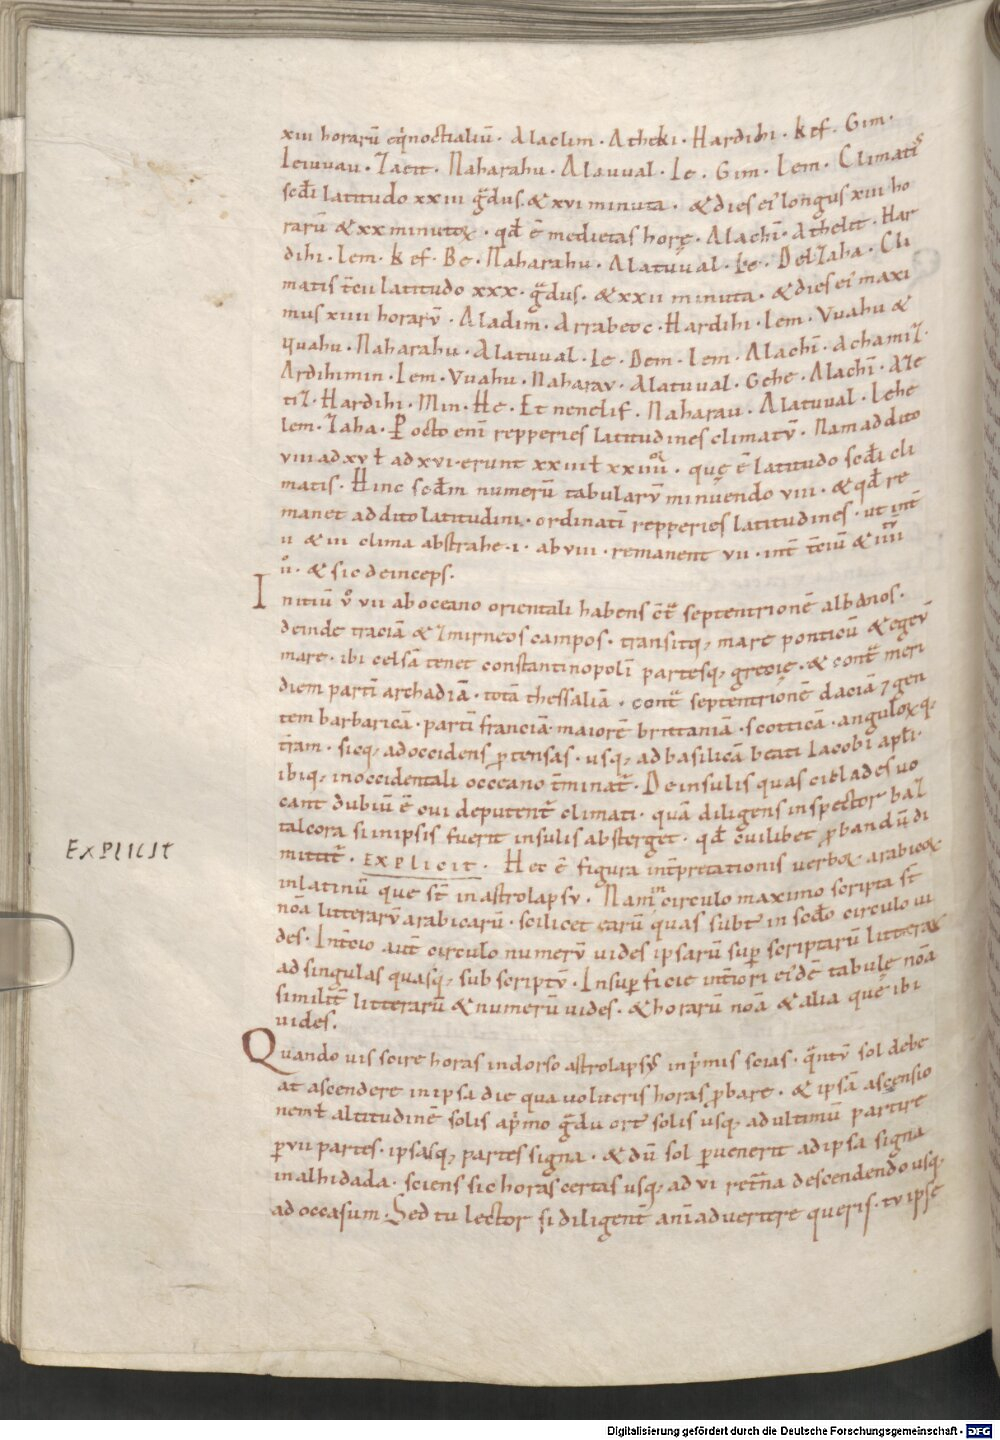 xiii horarū eq̇noctialiū · Alaclim · Atheki · Hardihi · kef · Gim ·
Leiuvau · Taett · Naharahu · Alauual · Le · Gim · Lem · Climatis
scd̄i latitudo xxiii gͣdus · & xvi minuta · & dies ei᷒ longus xiii ho
rarū & xx minutoꝝ · qđ ē medietas horę · Alachī · Athelet · Har
dihi · lem · kef · Be · Naharahu · Alatuual · Le · Del Zaha · Cli
matis t̄cii latitudo xxx · gͣdus · & xxii minuta · & dies ei᷒ maxi
mus xiiii horarū · Aladim · Arrabeoc · Hardihi · lem · Vuahu &
quahu · Naharahu · Alatuual · le · Dem · lem · Alachī · Achamiz ·
Ardihimin · Lem · Vuahu · Naharav · Alatuual · Gehe · Alachī · Aze
tiz · Hardihi · Min · He · Et nenelif · Naharau · Alatuual · Lehe
lem · Zaha · P octo enī repperies latitudines climatū · Nam addito
viii ad xv ł ad xvi · erunt xxiii ł xxiiii · quę ē latitudo scd̄i cli
matis · Hinc scdm̄ numerū tabularū minuendo viii · & qđ re
manet addito latitudini · ordinatī repperies latitudines · ut int̄
ii & iii clima abstrahe · i · ab viii · remanent vii · int̄ t̄ciū & iiii
ů · & sic deinceps .
Initiū v̊ vii ab oceano orientali habens cͣt septentrionē albanos ·
deinde traciā & zmirneos campos · transitq; mare ponticū & egeū
mare · ibi celsā tenet constantinopolī partesq; grecie · & contͣ meri
diem partī archadiā · totā thessaliā · contͣ septentrionē daciā ⁊ gen
tem barbaricā · partī franciā · maiorē brittaniā · scotticā · anguloꝝq;
t̄ram · sicq; ad occidens ꝓtensas · usq; ad basilicā beati Iacobi apłi ·
ibiq; in occidentali occeano t̄minat᷑ · De insulis quas cicladesuo
cant dubiū ē cui deputent᷑ climati · quā diligens inspector bal
talcora si in ipsis fuerit insulis absterget · qđ cuilibet ꝓbandū di
mittit᷑ · EXPLICIT · Hec ē figura int̄pretationis verboꝝ arabicoꝝ
in latinū que st̄ in astrolapsu · Nam in circulo maximo scripta st̄
nōa litterarū arabicarū · scilicet earū quas subt᷑ in scd̄o circulo vi
des · In t̄cio aut̄ circulo numerū vides ipsarū suꝑ scriptarū litteraꝝ
ad singulas quasq; subscriptū · In suꝑficie int̄iori ei᷒dē tabulę nōa
similit᷑ litterarū & numerū vides · & horarū nōa & alia quę ibi
vides .
Quando vis scire horas in dorso astrolapsus inpͥmis scias · qͣntū sol debe
at ascendere in ipsa die qua volueris horas ꝓbare · & ipsā ascensio
nem ł altitudinē solis a pͥmo gͣdu ort᷒ solis usq; ad ultimū partire
ꝑ vii partes · ipsasq; partes signa · & dū sol ꝑvenerit ad ipsa signa
in alhidada · sciens sic horas certas usq; ad vi retͥna descendendo usq;
ad occasum · Sed tu lector si diligent᷑ anīadvertere queris · tu ipse
EXPLICIT
Digitalisierung gefördert durch die Deutsche Forschungsgemeinschaft - DFG